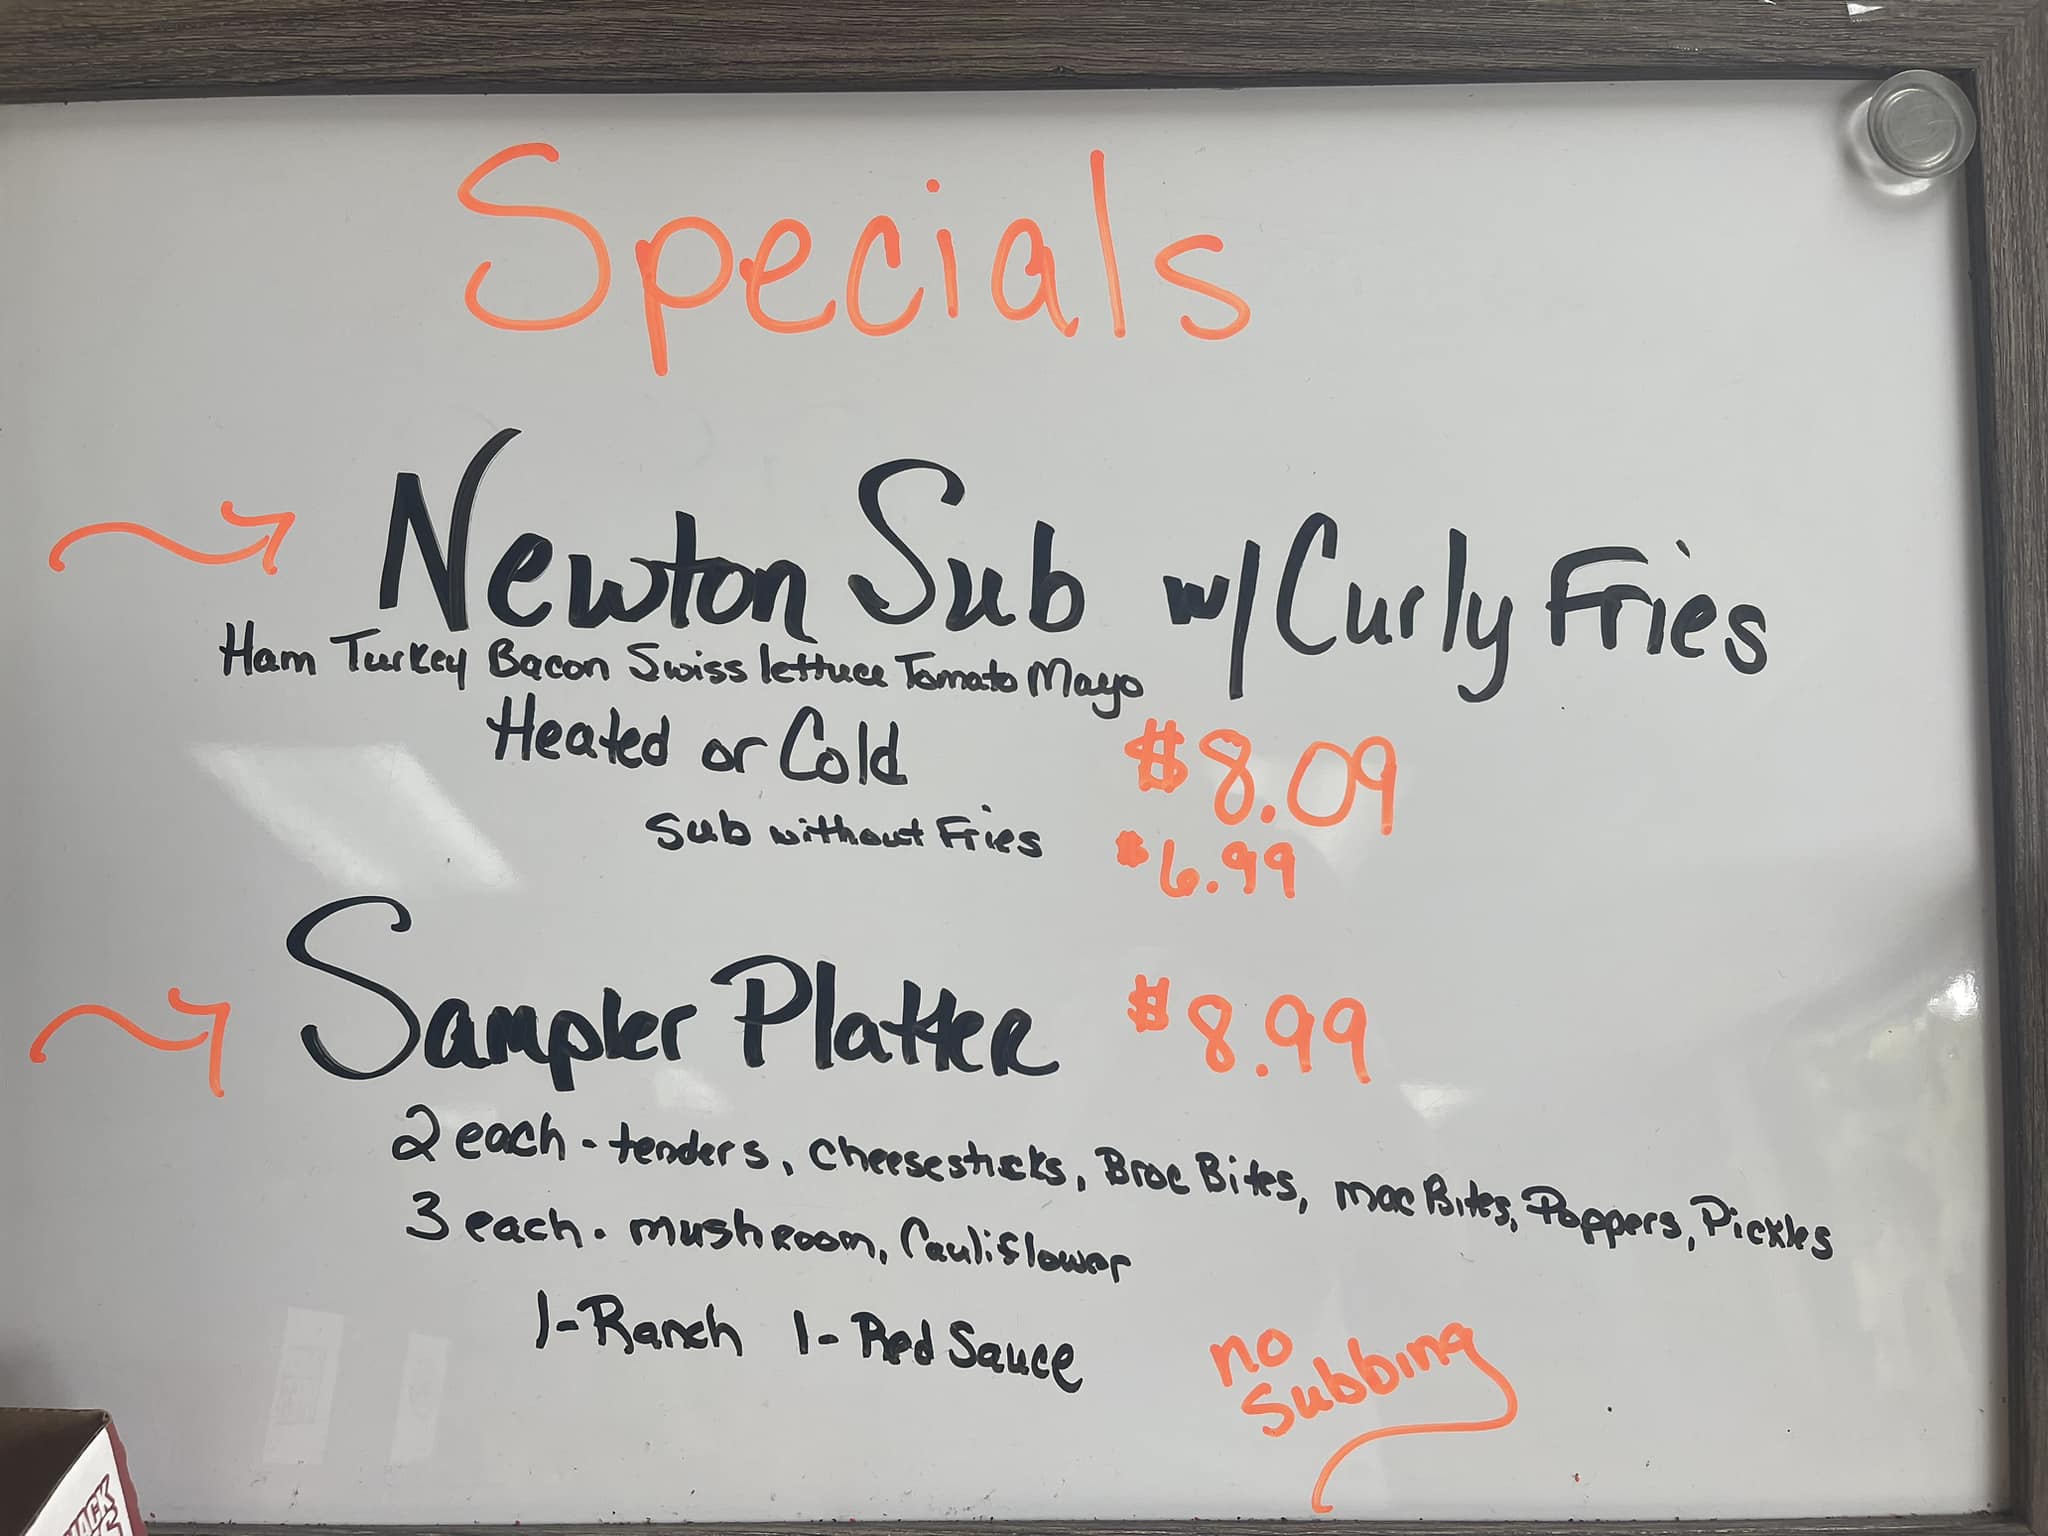 Specials
Newton Sub w/ Curly Fries
Ham Turkey Bacon Swiss lettuce Tomato Mayo
Heated or Cold $8.09
Sub without Fries $6.99
Sampler Platter $8.99
2 each - tenders, cheesesticks, Broc Bites, mac Bites, Poppers, Pickles
3 each - mushroom, Cauliflower
1-Ranch 1-Red Sauce
no
Subbing